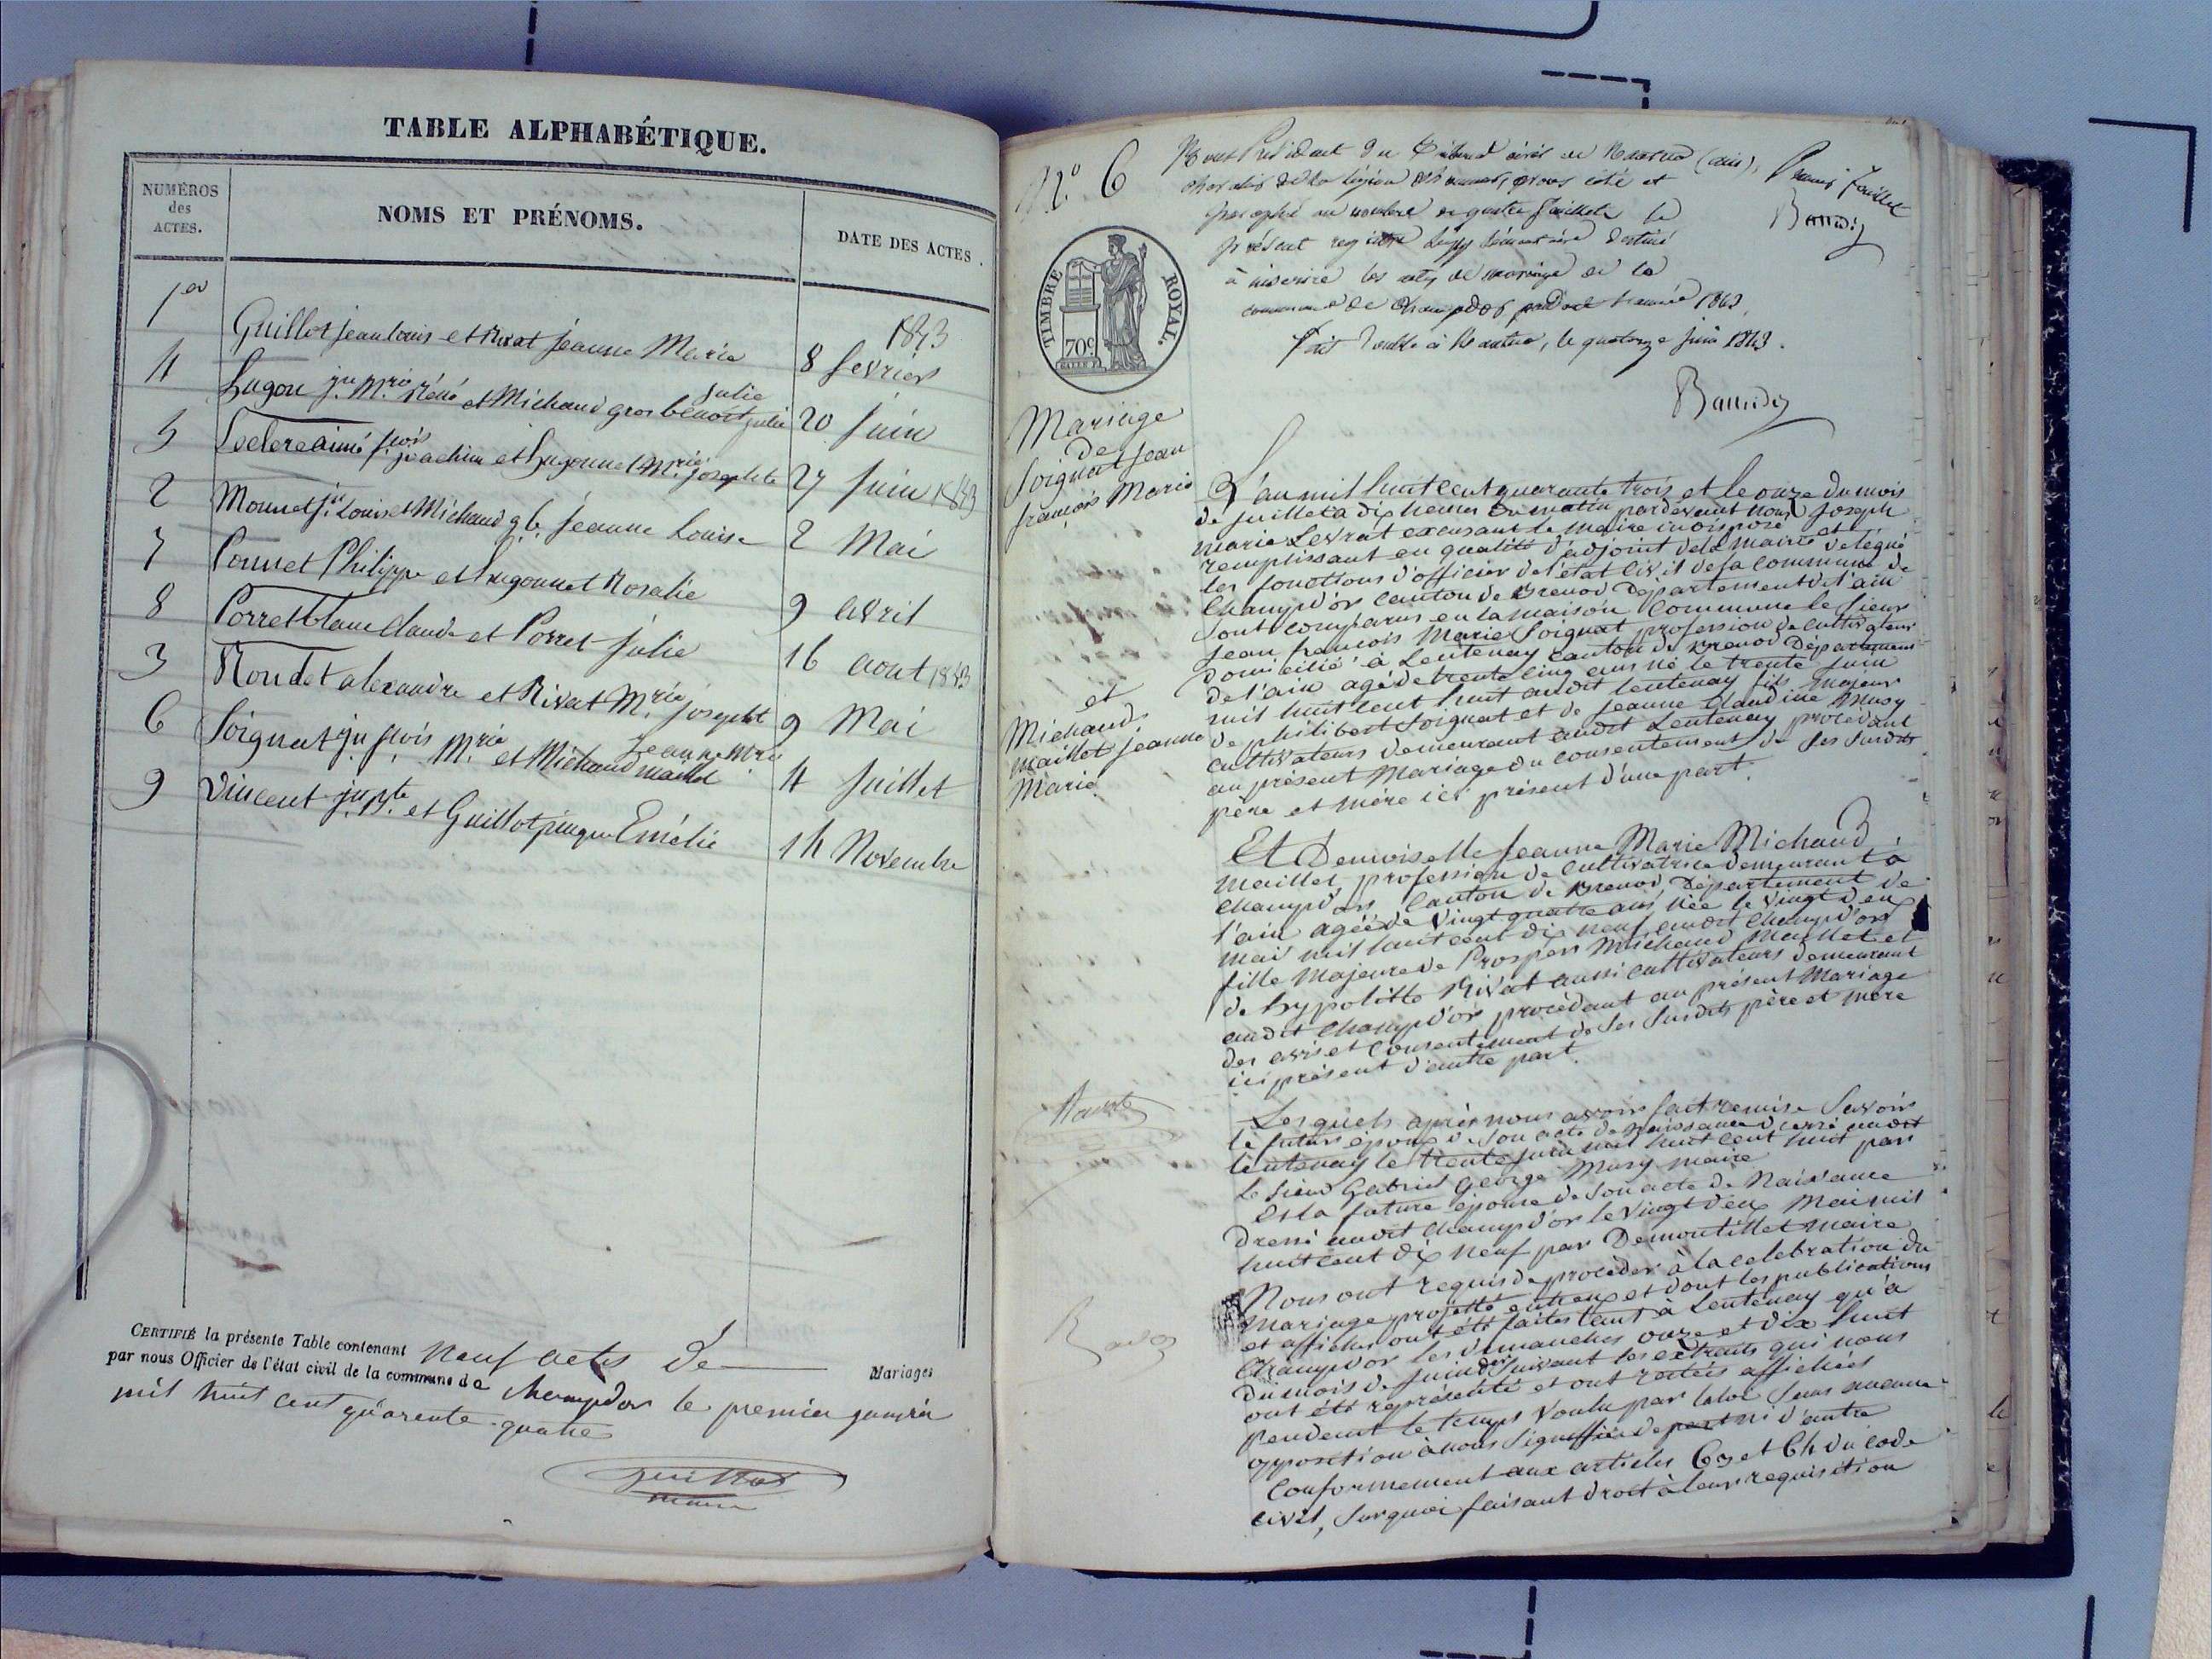 TABLE ALPHABÉTIQUE.
NUMÉROS des ACTES.
NOMS ET PRÉNOMS.
DATE DES ACTES.
1843
1er Guillot jean louis et Rivat jeanne Marie 8 fevrier
4 Lugon jn Mrie Réné et Michaud gros benoit julie Julie 20 Juin
5 Leclere aimé fçois joachim et Lugonnet Mrie josephte 27 Juin 1843
2 Monnet jn Louis et Michaud g. b. Jeanne Louise 2 Mai
7 Ponnet Philippe et Lugonnet Rosalie 9 avril
8 Porret blanc Claude et Porret julie 16 aout 1843
3 Rondet alexandre et Rivat Mrie josephte 9 Mai
6 Soignat jn fçois Mrie et Michaud maillet Jeanne Mrie 11 Juillet
9 Vincent jn Bte et Guillot Emélie 14 Novembre
CERTIFIÉ la présente Table contenant neuf actes de Mariages
par nous Officier de l'état civil de la commune de Champdor le premier janvier
mil huit cent quarante-quatre
Guillot
maire
N.º 6
Nous Président du Tribunal civil de Nantua (ain),
chevalier de la légion d'honneur, avons coté et
paraphé au nombre de quatre feuillets le
présent registre supplémentaire destiné
à inscrire les actes de mariage de la
commune de Champdor pendant l'année 1843.
Fait double à Nantua, le quatorze juin 1843.
Premier feuillet
Baudin
Baudin
TIMBRE ROYAL.
70c
Mariage
de
Soignat Jean
françois Marie
et
Michaud
maillet Jeanne
Marie
L'an mil huit cent quarante trois et le onze du mois
de juillet à dix heures du matin pardevant nous Joseph
marie Levrat excusant le maire indisposé et
remplissant en qualité d'adjoint de la mairie delegué
les fonctions d'officier de l'état civil de la commune de
Champd'or canton de Brenod Département de l'ain
Sont comparus en la maison Commune le Sieur
Jean françois Marie Soignat profession de cultivateur
Domicilié à Lentenay canton de Brenod Département
de l'ain agé de trente cinq ans né le trente juin
mil huit cent huit audit lentenay fils majeur
de philibert Soignat et de Jeanne Claudine Musy
cultivateurs demeurant audit Lentenay procédant
au présent Mariage du consentement de ses Susdits
père et mère ici présent d'une part.
Et Demoiselle Jeanne Marie Michaud
maillet, profession de Cultivatrice demeurant à
Champd'or Canton de Brenod, Département de
l'ain agée de Vingt quatre ans, née le vingt deux
mai mil huit cent dix neuf audit Champd'or
fille Majeure de Prosper Michaud Maillet et
de hypolitte Rivat aussi cultivateurs demeurant
audit Champd'or procédant au présent Mariage
des avis et Consentement de ses Susdits père et mère
ici présent d'autre part.
Lesquels après nous avoir fait remise Savoir
le futur époux de son acte de Naissance dressé audit
lentenay le trente juin mil huit cent huit par
le Sieur Gabriel George Musy maire
Et la future épouse de son acte de Naissance
Dressé audit Champd'or le vingt deux Mai mil
huit cent dix neuf par Demontillet maire
Nous ont requis de procéder à la celebration du
Mariage projetté entreux et dont les publications
et affiches ont été faites tant à Lentenay qu'à
Champd'or les dimanches onze et dix huit
du mois de juin der Suivant les extraits qui nous
ont été représenté et ont restées affichées
pendant le temps voulu par la loi Sans aucune
opposition à nous Signiffiée de part ni d'autre
Conformement aux articles 63 et 64 du code
civil, Surquoi faisant droit à leur requisition